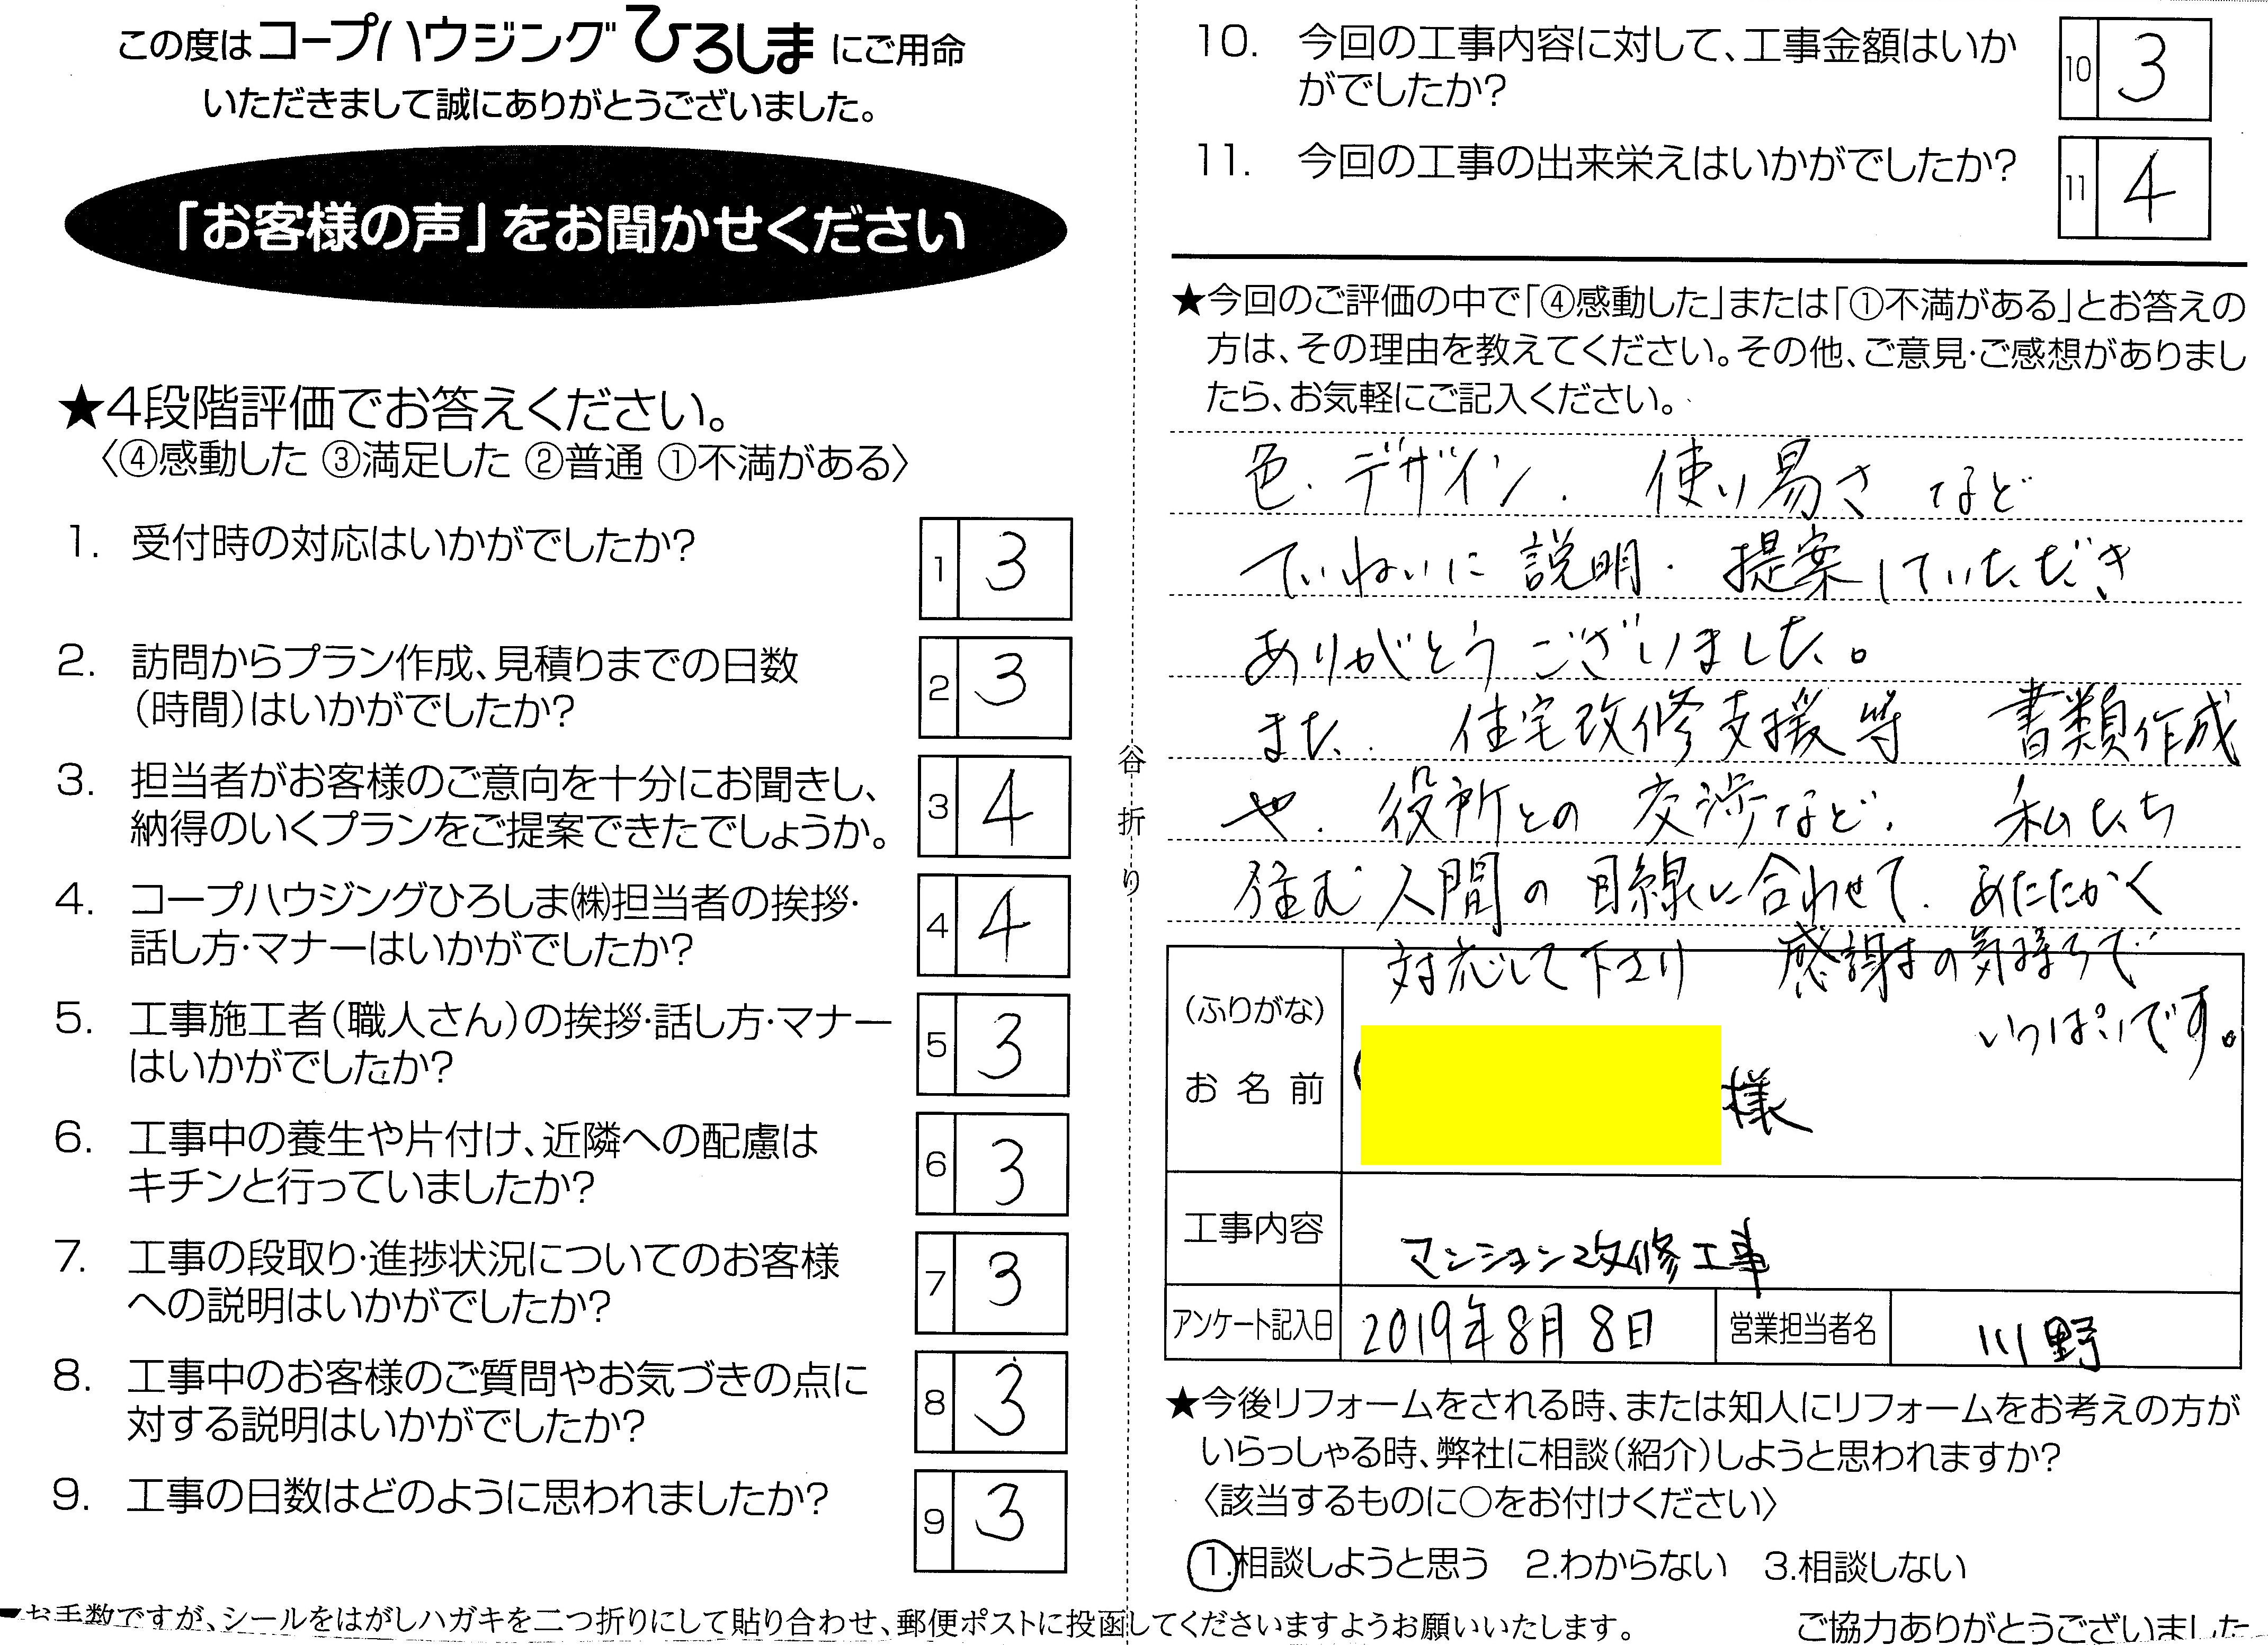 この度はコープハウジングひろしまにご用命
いただきまして誠にありがとうございました。
「お客様の声」をお聞かせください
★4段階評価でお答えください。
〈④感動した ③満足した ②普通 ①不満がある〉
1. 受付時の対応はいかがでしたか?
1 3
2. 訪問からプラン作成、見積りまでの日数
(時間)はいかがでしたか?
2 3
3. 担当者がお客様のご意向を十分にお聞きし、
納得のいくプランをご提案できたでしょうか。
3 4
4. コープハウジングひろしま㈱担当者の挨拶・
話し方・マナーはいかがでしたか?
4 4
5. 工事施工者(職人さん)の挨拶・話し方・マナー
はいかがでしたか?
5 3
6. 工事中の養生や片付け、近隣への配慮は
キチンと行っていましたか?
6 3
7. 工事の段取り・進捗状況についてのお客様
への説明はいかがでしたか?
7 3
8. 工事中のお客様のご質問やお気づきの点に
対する説明はいかがでしたか?
8 3
9. 工事の日数はどのように思われましたか?
9 3
谷折り
10. 今回の工事内容に対して、工事金額はいか
がでしたか?
10 3
11. 今回の工事の出来栄えはいかがでしたか?
11 4
★今回のご評価の中で「④感動した」または「①不満がある」とお答えの
方は、その理由を教えてください。その他、ご意見・ご感想がありまし
たら、お気軽にご記入ください。
色、デザイン、使い易さ など
ていねいに 説明・提案していただき
ありがとうございました。
また、住宅改修支援等 書類作成
や、役所との 交渉など、私たち
住む人間の 目線に合わせて、あたたかく
対応して下さり 感謝の気持ちで
いっぱいです。
(ふりがな)
お名前 様
工事内容 マンション改修工事
アンケート記入日 2019年8月8日 営業担当者名 川野
★今後リフォームをされる時、または知人にリフォームをお考えの方が
いらっしゃる時、弊社に相談(紹介)しようと思われますか?
〈該当するものに○をお付けください〉
1.相談しようと思う 2.わからない 3.相談しない
お手数ですが、シールをはがしハガキを二つ折りにして貼り合わせ、郵便ポストに投函してくださいますようお願いいたします。
ご協力ありがとうございました